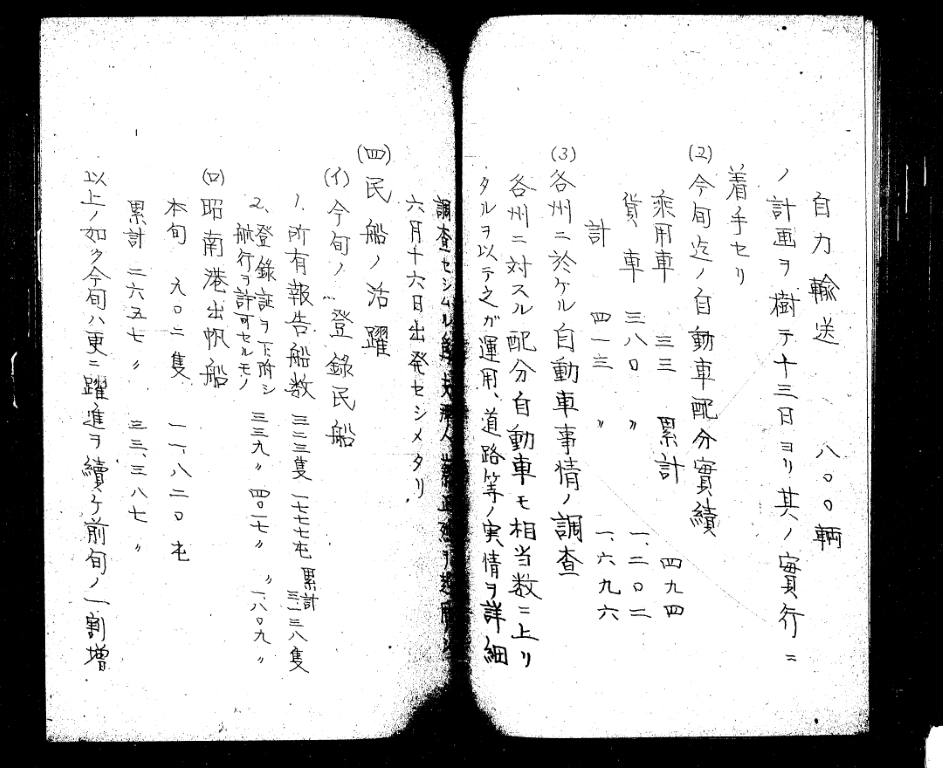 自力輸送　八〇〇輌
ノ計画ヲ樹テ十三日ヨリ其ノ實行ニ
着手セリ
(2)今旬迄ノ自動車配分實績
乘用車　三三　累計　四九四
貨車　三八〇〃　一、二〇二
計　四一三〃　一、六九六
(3)各州ニ於ケル自動車事情ノ調査
各州ニ対スル配分自動車モ相当数ニ上リ
タルヲ以テ之ガ運用、道路等ノ実情ヲ詳細
調査セシムル
六月十六日出発セシメタリ
(四)民船ノ活躍
(イ)今旬ノ登録民船
1.所有報告船数　三二三隻　一七七七屯　累計　三、一三八隻
2.登録証ヲ下附シ航行ヲ許可セルモノ　三三九〃　四〇一七〃　〃　一、八〇九〃
(ロ)昭南港出帆船
本旬　九〇二隻　一一、八二〇屯
累計　二六五七〃　三三、三八七〃
以上ノ如ク今旬ハ更ニ躍進ヲ續ケ前旬ノ一割増